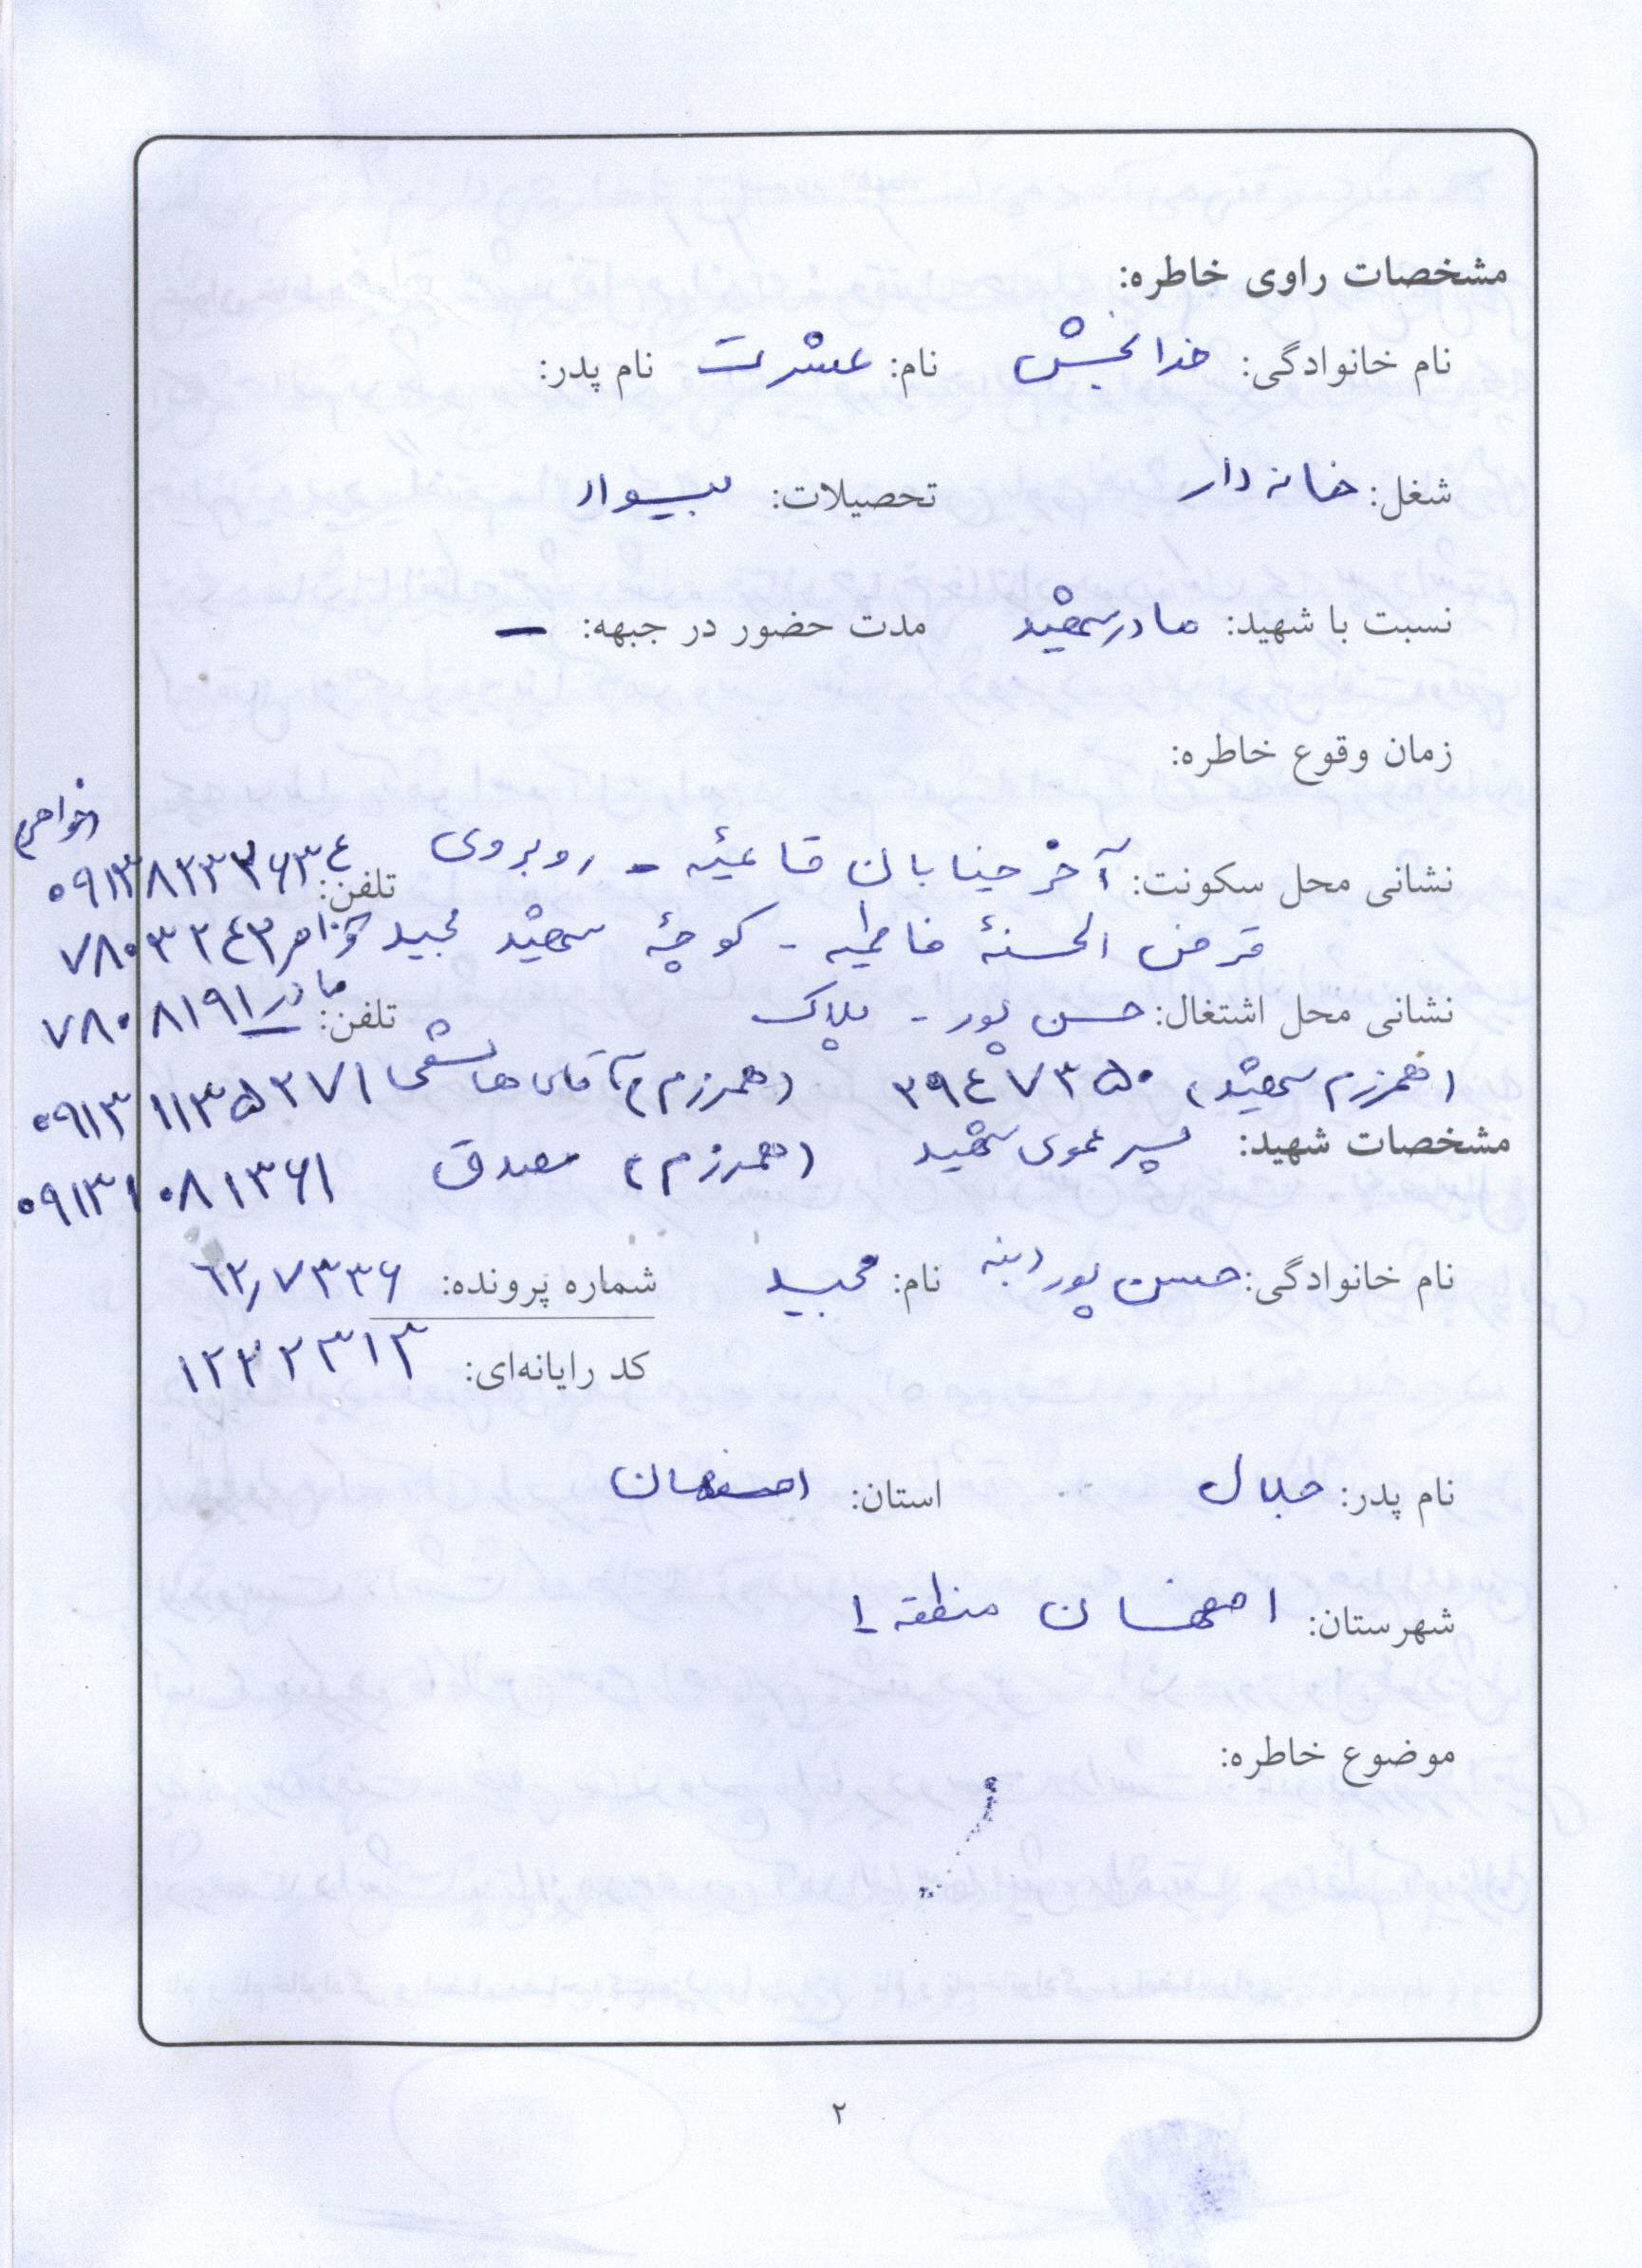 مشخصات راوی خاطره:
نام خانوادگی: خدابخش نام: عشرت نام پدر:
شغل: خانه دار تحصیلات: بیسواد
نسبت با شهید: مادر شهید مدت حضور در جبهه: –
زمان وقوع خاطره:
(خواهر)
نشانی محل سکونت: آخر خیابان قائمیه - روبروی تلفن: ۰۹۱۳۸۲۳۳۶۳۴
قرض الحسنهٔ فاطمیه - کوچهٔ شهید مجید خواهر ۷۸۰۳۲۴۳
نشانی محل اشتغال: حسن پور - پلاک تلفن: مادر ۷۸۰۸۱۹۱
(همرزم شهید) ۳۹۴۷۳۵۰ (همرزم) آقای هاشمی ۰۹۱۳۱۱۳۵۲۷۱
مشخصات شهید: پسر عموی شهید (همرزم) مصدق ۰۹۱۳۱۰۸۱۳۶۱
نام خانوادگی: حسن پور دنبه نام: مجید شماره پرونده: ۶۲٫۷۳۳۶
کد رایانه‌ای: ۱۲۳۲۳۱۳
نام پدر: جلال استان: اصفهان
شهرستان: اصفهان منطقه ۱
موضوع خاطره:
۲